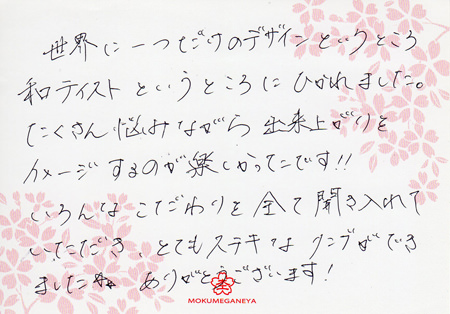 世界に一つだけのデザインというところ
和テイストというところにひかれました。
たくさん悩みながら出来上がりを
イメージするのが楽しかったです!!
いろんなこだわりを全て聞き入れて
いただき、とてもステキなリングができ
ました☆☆ ありがとうございます!
MOKUMEGANEYA